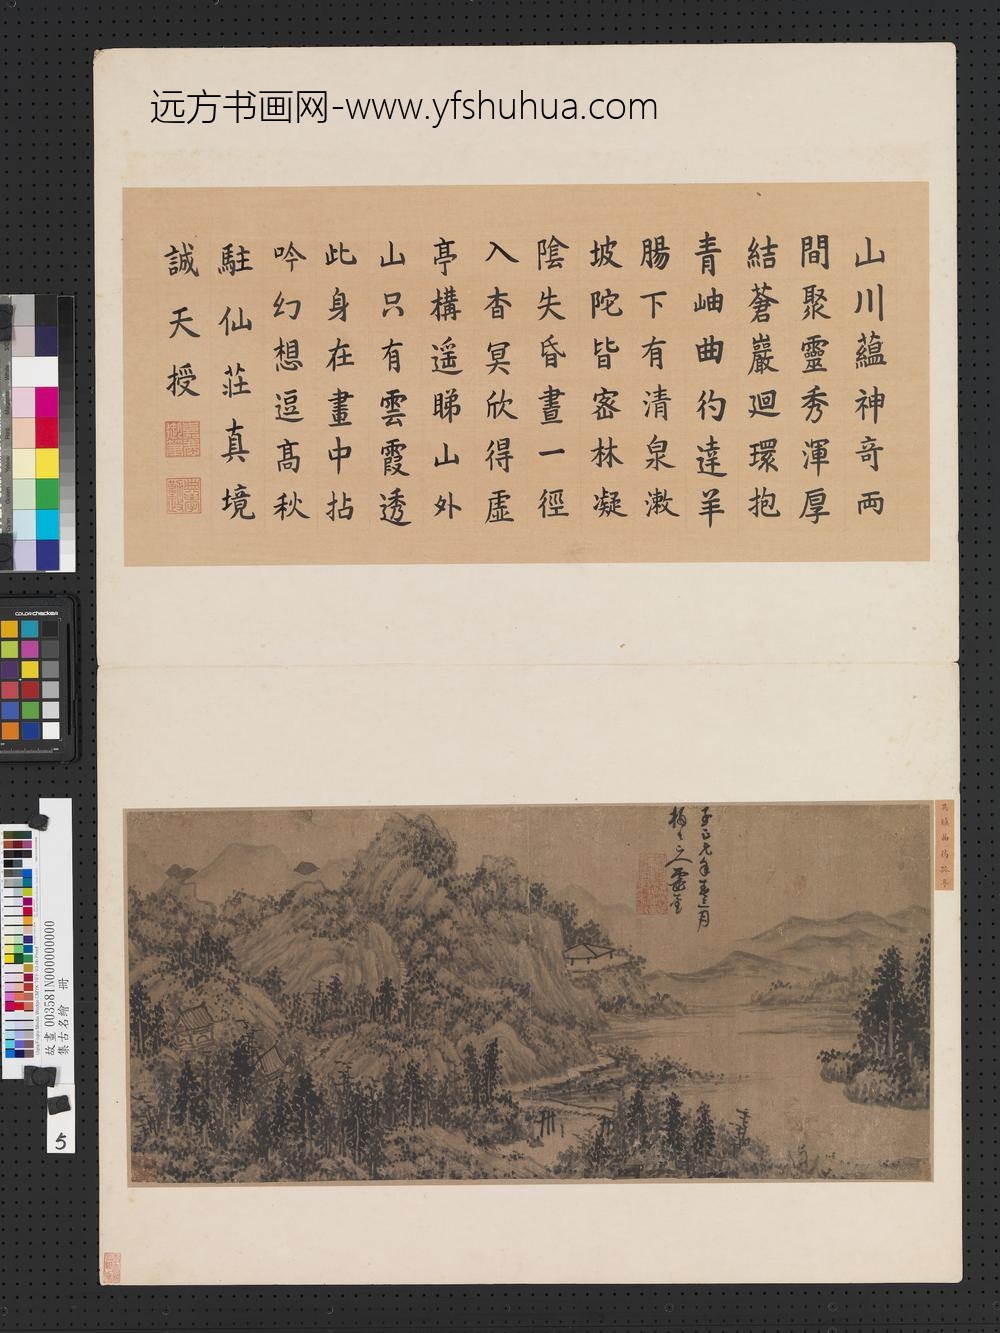 远方书画网-www.yfshuhua.com
山川蘊神奇両
間聚靈秀渾厚
結蒼巖迴環抱
青岫曲彴達羊
腸下有清泉漱
坡陀皆密林凝
陰失昏晝一徑
入杳冥欣得虛
亭構遥睇山外
山只有雲霞透
此身在畫中拈
吟幻想逗髙秋
駐仙莊真境
誠天授
至正九年
colorchecker
故畫 003581N000000000
集古名繪 冊
5